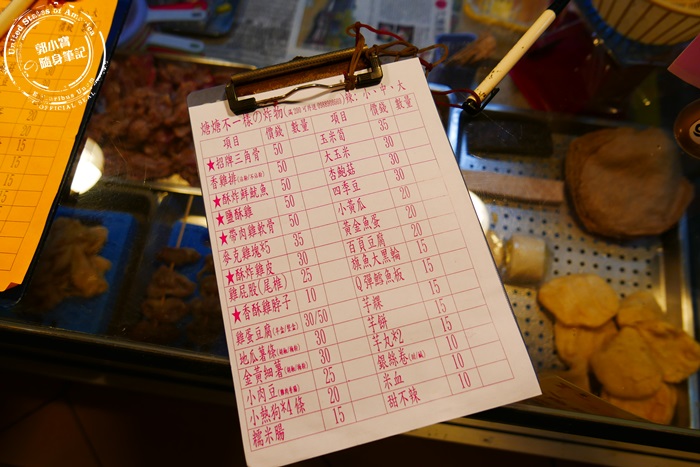 郭小寶
隨身筆記
燒燒不一樣の炸物 辣:小、中、大
項目 價錢 數量 項目 價錢 數量
★招牌三角骨 50 玉米筍 35
香雞排 50 大玉米 30
★酥炸鮮魷魚 50 杏鮑菇 30
★鹽酥雞 50 四季豆 30
★帶肉雞軟骨 50 小黃瓜 20
麥克雞塊*5 35 黃金魚蛋 20
★酥炸雞皮 30 百頁豆腐 20
雞屁股(尾椎) 25 旗魚大黑輪 20
★香酥雞脖子 10 Q彈鱈魚板 15
雞蛋豆腐(半盒/整盒) 30/50 芋粿 15
地瓜薯條 30 芋餅 15
金黃細薯 30 芋丸*2 15
小肉豆 25 銀絲卷 15
小熱狗*4條 20 米血 10
糯米腸 15 甜不辣 10